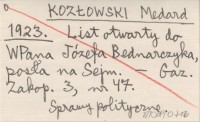 KOZŁOWSKI Medard
1923. List otwarty do
WPana Józefa Bednarczyka,
posła na Sejm. — Gaz.
Zakop. 3, nr 47.
Sprawy polityczne